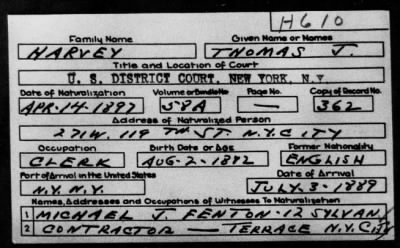 H610
Family Name Given Name or Names
HARVEY THOMAS J.
Title and Location of Court
U. S. DISTRICT COURT, NEW YORK, N.Y.
Date of Naturalization Volume or Bundle No Page No. Copy of Record No.
APR-14-1897 58A — 362
Address of Naturalized Person
271 W. 119 TH ST. N.Y. CITY
Occupation Birth Date or Age Former Nationality
CLERK AUG-2-1882 ENGLISH
Port of Arrival in the United States Date of Arrival
N.Y. N.Y. JULY-3-1889
Names, Addresses and Occupations of Witnesses To Naturalization
1 MICHAEL J. FENTON-12 SYLVAN
2 CONTRACTOR — TERRACE N.Y. CITY